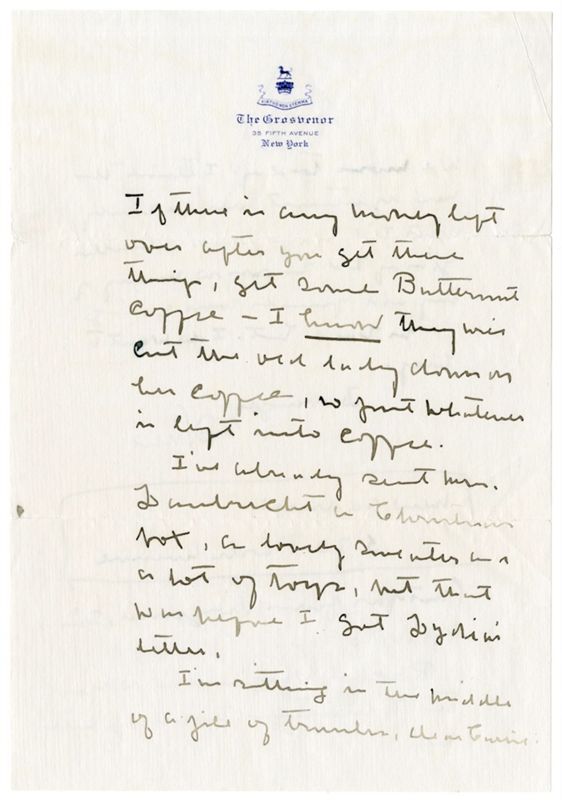 VIRTUS NON STEMMA
The Grosvenor
35 FIFTH AVENUE
New York
If there is any money left
over after you get these
things, get some Butternut
Coffee – I know they will
cut the old lady down on
her coffee, so put whatever
is left into coffee.
I've already sent Mrs.
Lambrecht a Christmas
box, a lovely sweater and
a lot of toys, but that
was before I got Lydia's
letter.
I'm sitting in the middle
of a pile of trunks, dear Carrie.